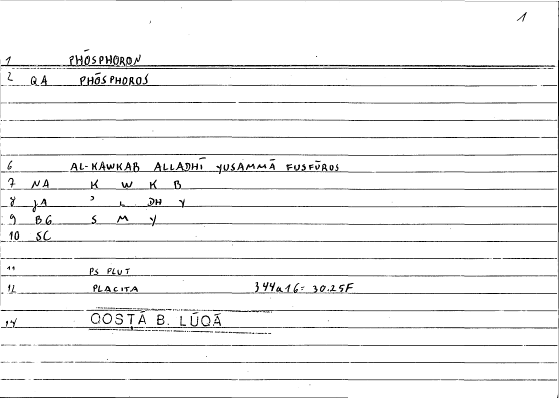 1
1 PHŌSPHORON
2 QA PHŌSPHOROS
6 AL-KAWKAB ALLADHĪ YUSAMMĀ FUSFŪROS
7 NA K W K B
8 JA ʾ L DH Y
9 BG S M Y
10 SC
11 PS PLUT
12 PLACITA 344a16= 30.25F
14 QOSṬĀ B. LŪQĀ